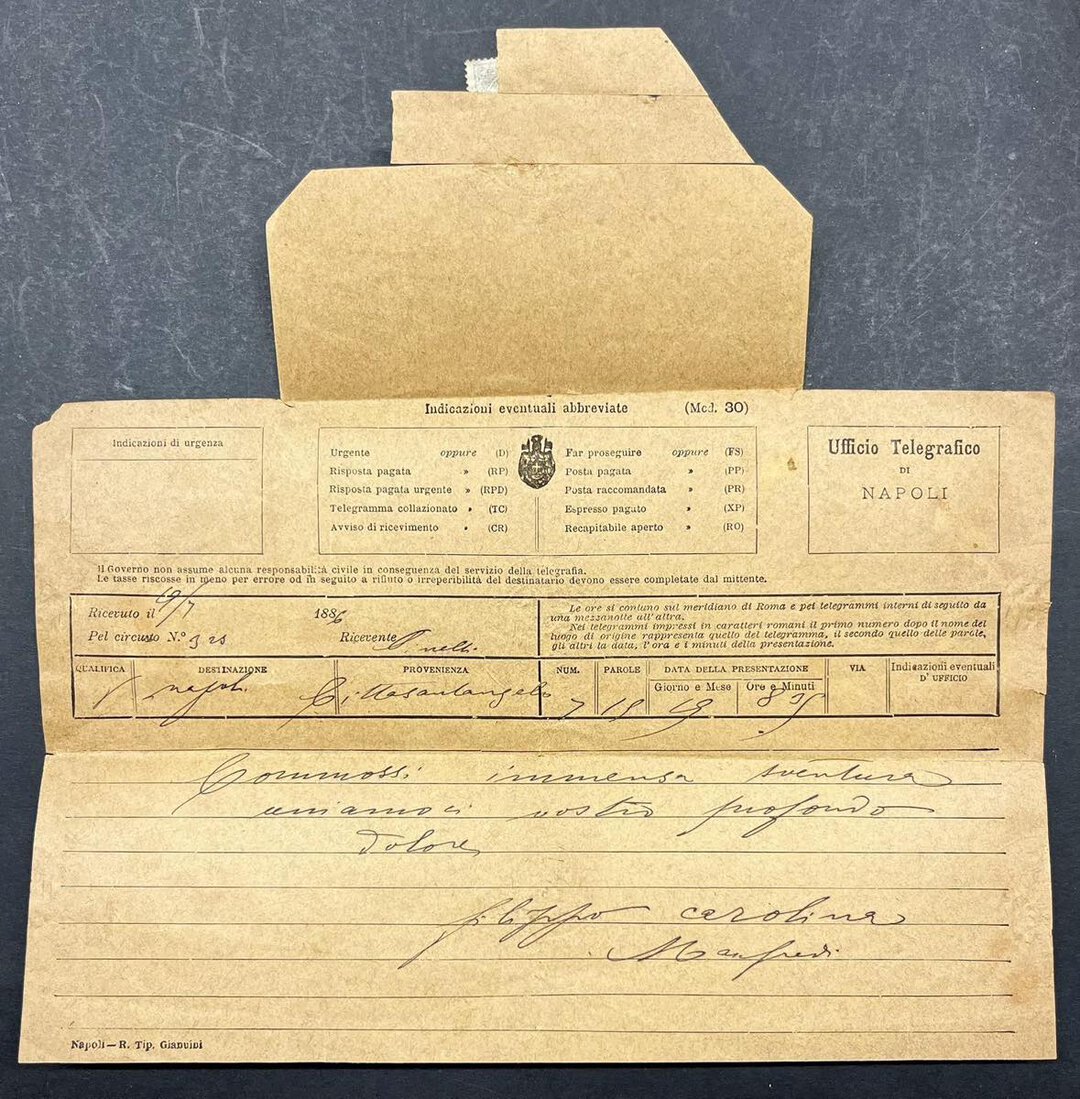 Indicazioni eventuali abbreviate (Mod. 30)
Indicazioni di urgenza
Urgente oppure (D)
Risposta pagata » (RP)
Risposta pagata urgente » (RPD)
Telegramma collazionato » (TC)
Avviso di ricevimento » (CR)
Far proseguire oppure (FS)
Posta pagata » (PP)
Posta raccomandata » (PR)
Espresso pagato » (XP)
Recapitabile aperto » (RO)
Ufficio Telegrafico
DI
NAPOLI
Il Governo non assume alcuna responsabilità civile in conseguenza del servizio della telegrafia.
Le tasse riscosse in meno per errore od in seguito a rifiuto o irreperibilità del destinatario devono essere completate dal mittente.
Ricevuto il 19/7 1886
Pel circuito N.º Ricevente
Le ore si contano sul meridiano di Roma e pei telegrammi interni di seguito da
una mezzanotte all'altra.
Nei telegrammi impressi in caratteri romani il primo numero dopo il nome del
luogo di origine rappresenta quello del telegramma, il secondo quello delle parole,
gli altri la data, l'ora e i minuti della presentazione.
QUALIFICA DESTINAZIONE PROVENIENZA NUM. PAROLE DATA DELLA PRESENTAZIONE VIA Indicazioni eventuali
Giorno e Mese Ore e Minuti D'UFFICIO
napoli Cittasantangelo 7 15 19
Commossi immensa sventura
uniamoci vostro profondo
dolore
filippo carolina
Manfredi
Napoli — R. Tip. Giannini